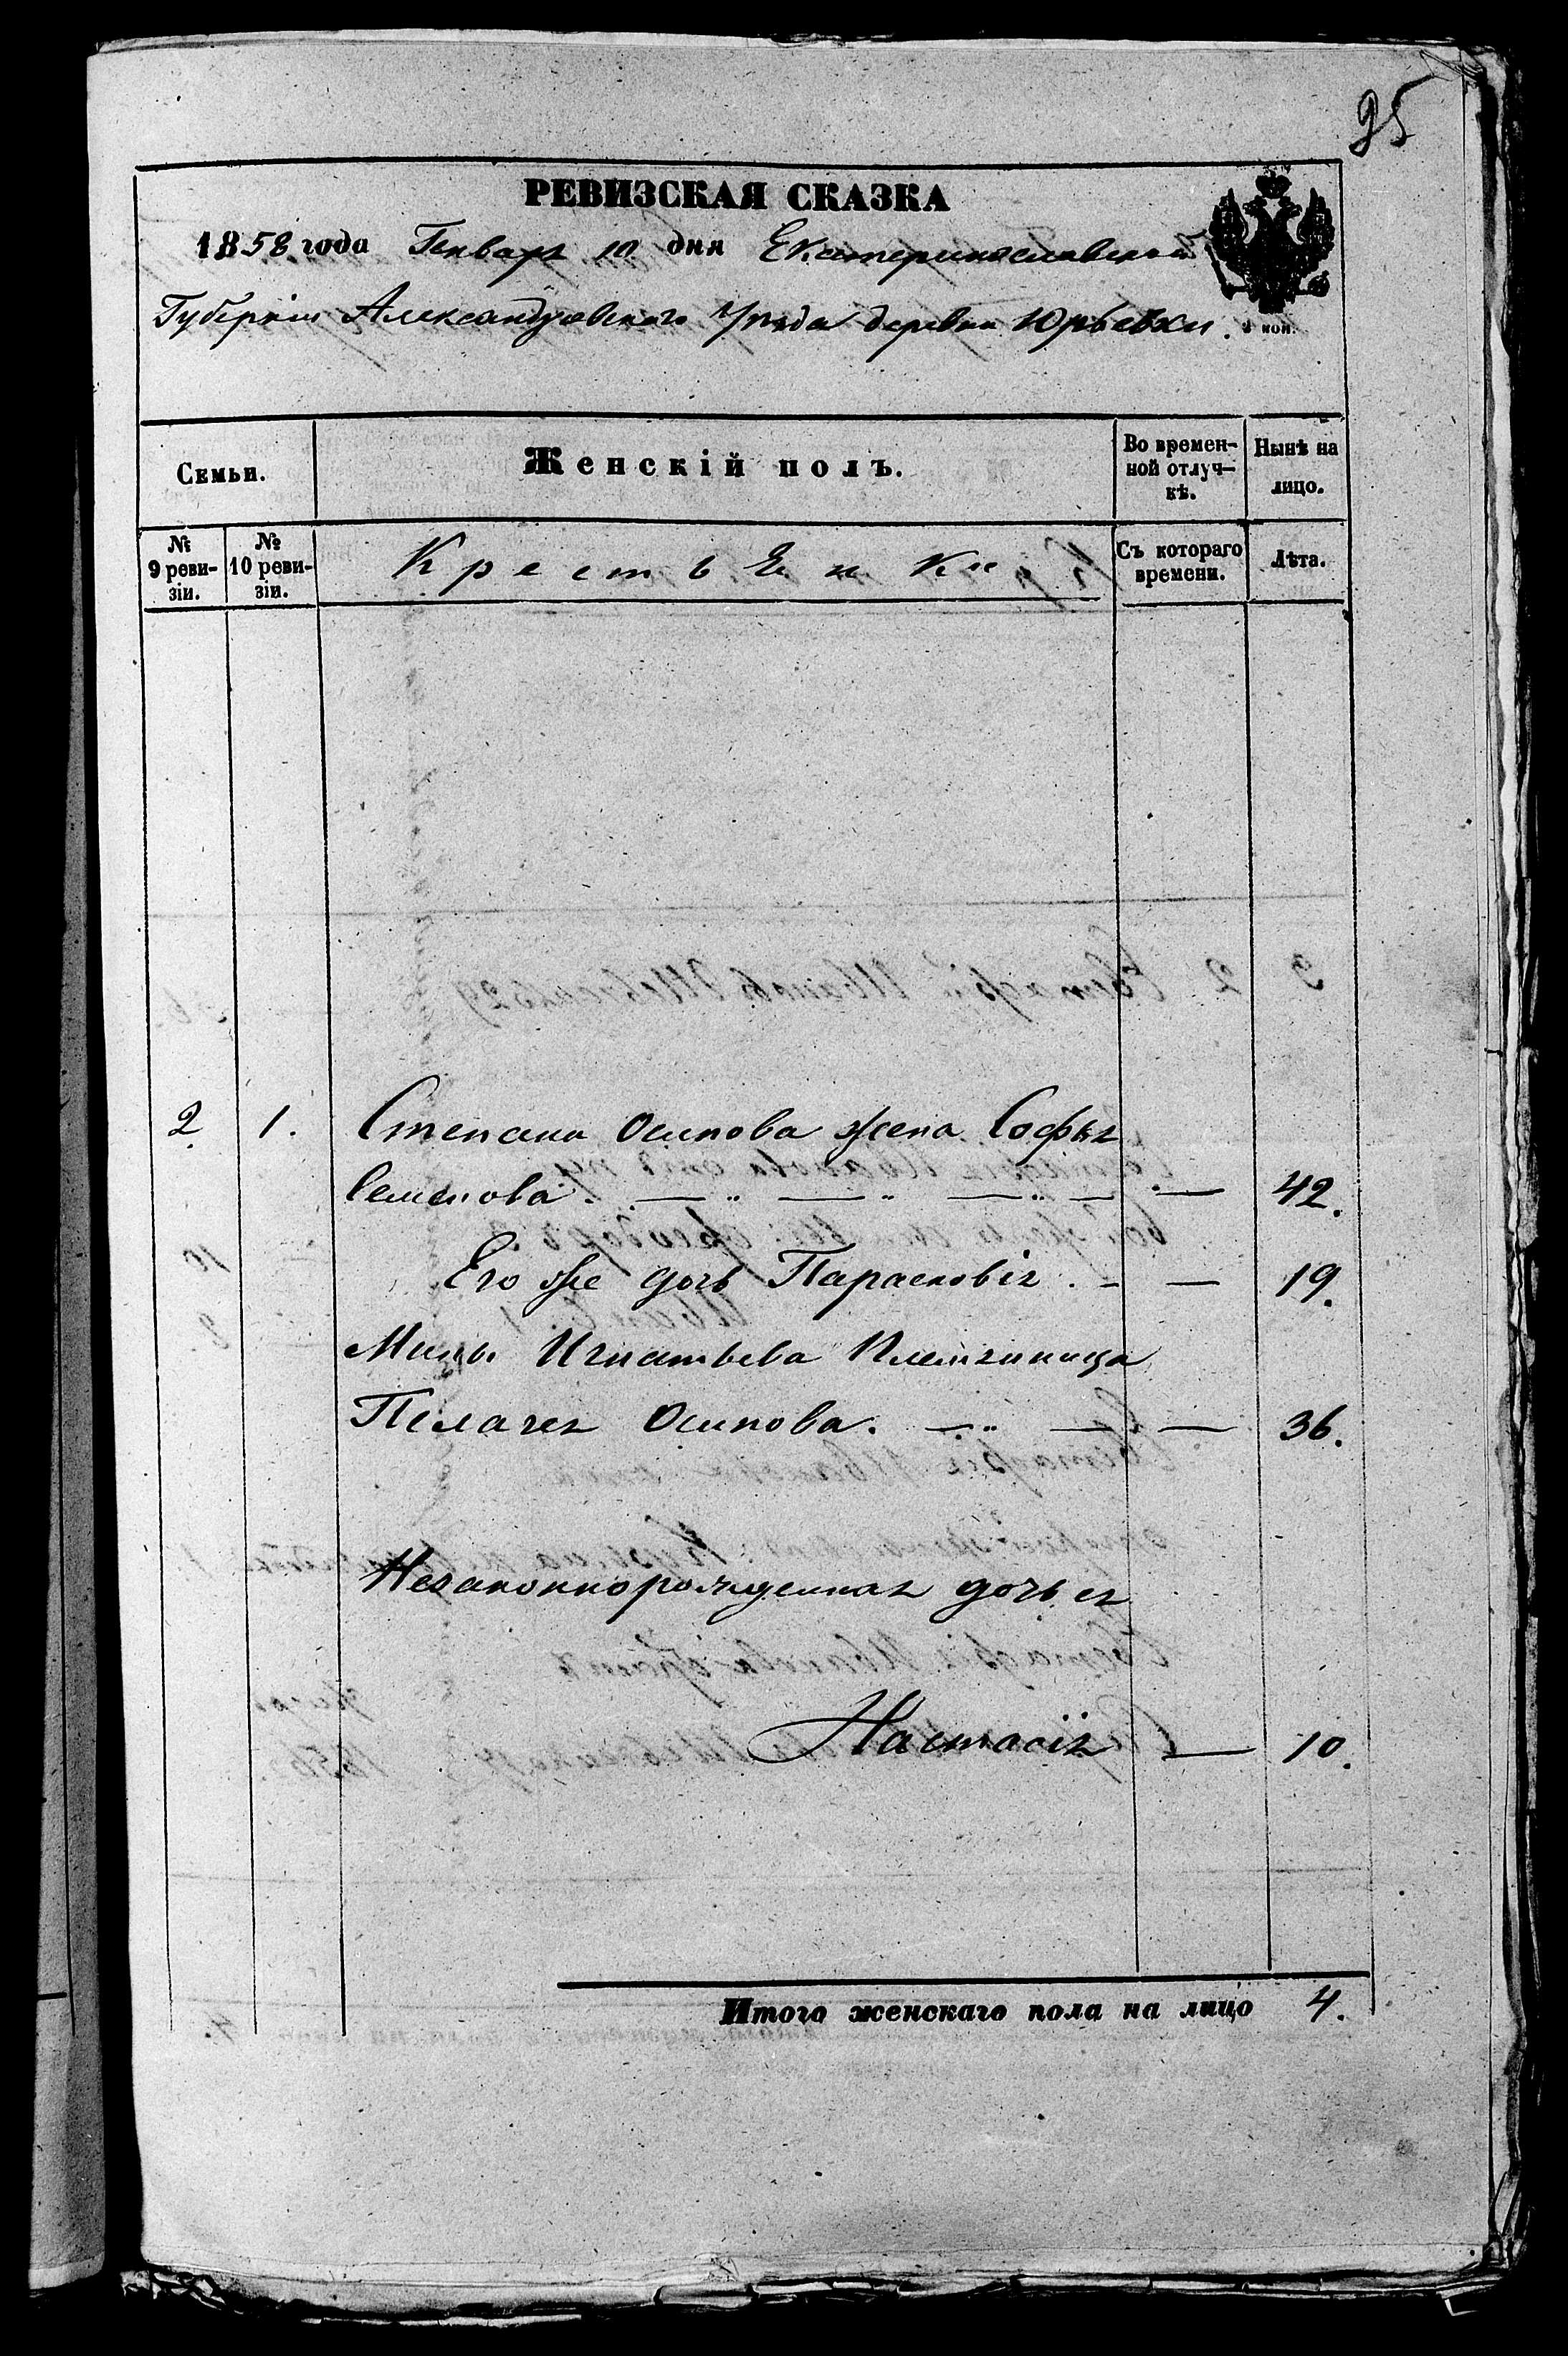 95
РЕВИЗСКАЯ СКАЗКА
1858 года Генваря 10 дня Екатеринославской
Губерніи Александровскаго Уѣзда деревни Юрьевки.
3 коп.
Семьи.
Женскій полъ.
Во времен-
ной отлуч-
кѣ.
Нынѣ на
лицо.
№
9 реви-
зіи.
№
10 реви-
зіи.
Крестьянки
Съ котораго
времени.
Лѣта.
2. 1. Степана Осипова жена Софья
Семенова. 42.
Его же дочь Парасковія. 19.
Мины Игнатьева Племяница
Пелагея Осипова. 36.
Незаконнорожденная дочь ея
Настасія 10.
Итого женскаго пола на лицо 4.